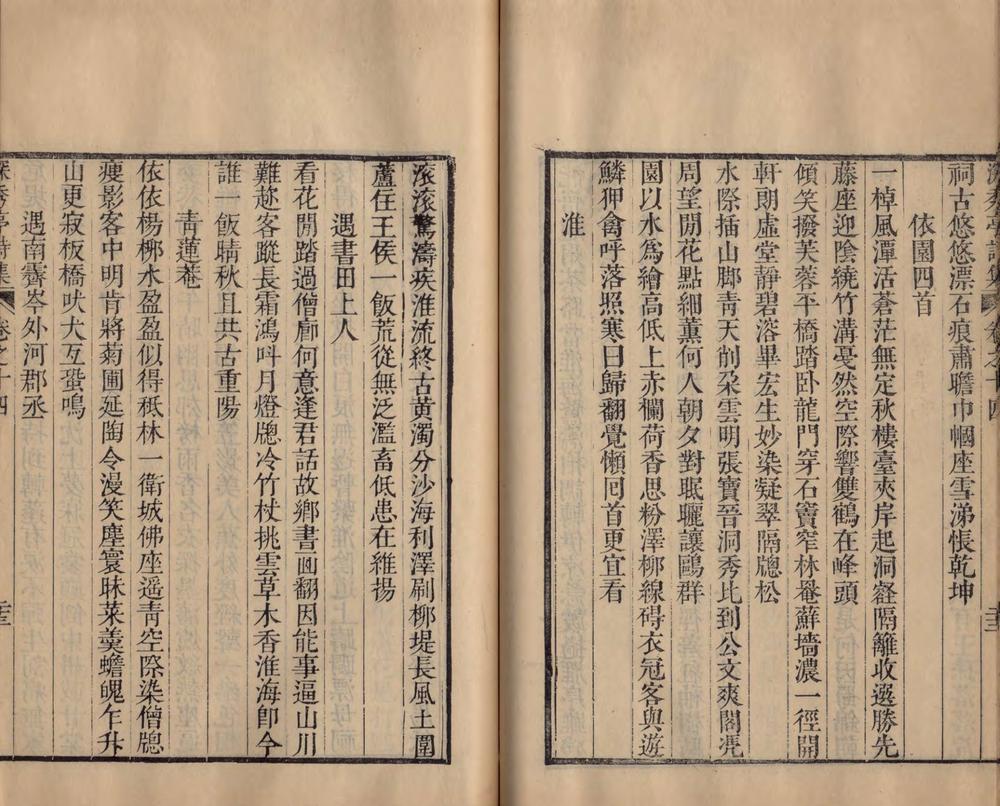 祠古悠悠漂石痕肅瞻巾幗座雪涕悵乾坤
依園四首
一棹風潭活蒼茫無定秋樓臺夾岸起洞壑隔籬收選勝先
藤座迎陰繞竹溝戞然空際響雙鶴在峰頭
傾笑撥芙蓉平橋踏卧龍門穿石竇窄林罨蘚墻濃一徑開
軒朗虛堂靜碧溶畢宏生妙染凝翠隔牕松
水際插山脚靑天削朶雲明張寶晉洞秀比到公文爽閣凴
周望閒花點細薰何人朝夕對眠曬讓鷗群
園以水爲繪高低上赤欄荷香思粉澤柳線碍衣冠客與遊
鱗狎禽呼落照寒日歸翻覺懶囘首更宜看
淮
滾滾驚濤疾淮流終古黃濁分沙海利澤刷柳堤長風土圍
蘆在王侯一飯荒從無泛濫畜低患在維揚
遇書田上人
看花閒踏過僧廊何意逢君話故鄉書畫翻因能事逼山川
難趁客蹤長霜鴻呌月燈牕冷竹杖挑雲草木香淮海卽今
誰一飯晴秋且共古重陽
靑蓮菴
依依楊柳水盈盈似得秪林一衛城佛座遥靑空際染僧牕
瘦影客中明肯將菊圃延陶令漫笑塵寰昧萊羮蟾魄乍升
山更寂板橋吠犬互蛩鳴
遇南霽岑外河郡丞
亭詩集 卷之十四